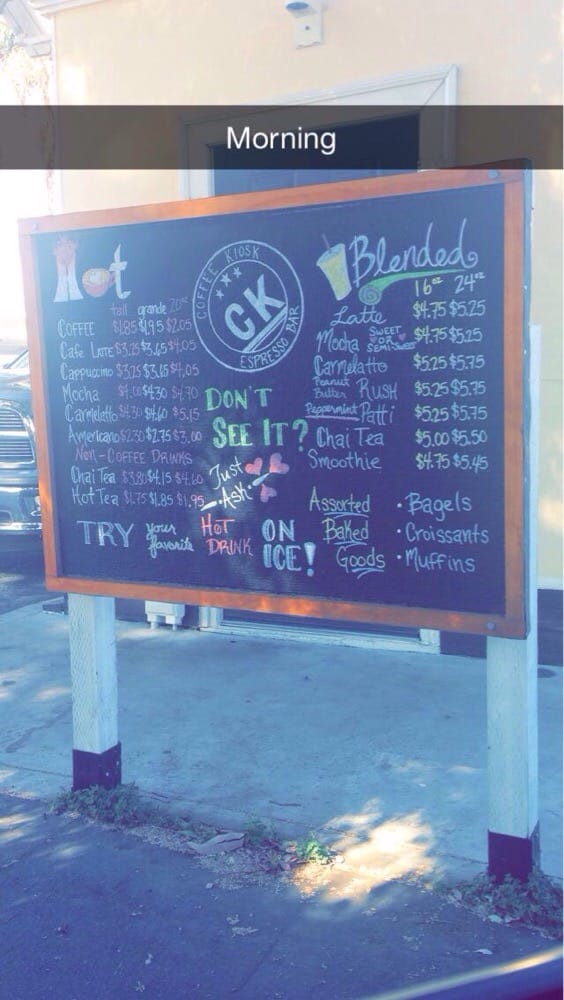 Morning
Hot
tall grande 20oz
COFFEE $1.85 $1.95 $2.05
Cafe LATTE $3.25 $3.65 $4.05
Cappuccino $3.25 $3.65 $4.05
Mocha $4.00 $4.30 $4.70
Carmelatto $4.30 $4.60 $5.15
Americano $2.30 $2.75 $3.00
NON-COFFEE DRINKS
Chai Tea $3.80 $4.15 $4.60
Hot Tea $1.75 $1.85 $1.95
TRY your favorite HOT DRINK ON ICE!
COFFEE KIOSK
CK
ESPRESSO BAR
DON'T
SEE IT?
Just
Ask
Blended
16oz 24oz
Latte $4.75 $5.25
Mocha SWEET OR SEMI-SWEET $4.75 $5.25
Carmelatto $5.25 $5.75
Peanut Butter RUSH $5.25 $5.75
Peppermint Patti $5.25 $5.75
Chai Tea $5.00 $5.50
Smoothie $4.75 $5.45
Assorted
Baked
Goods
• Bagels
• Croissants
• Muffins